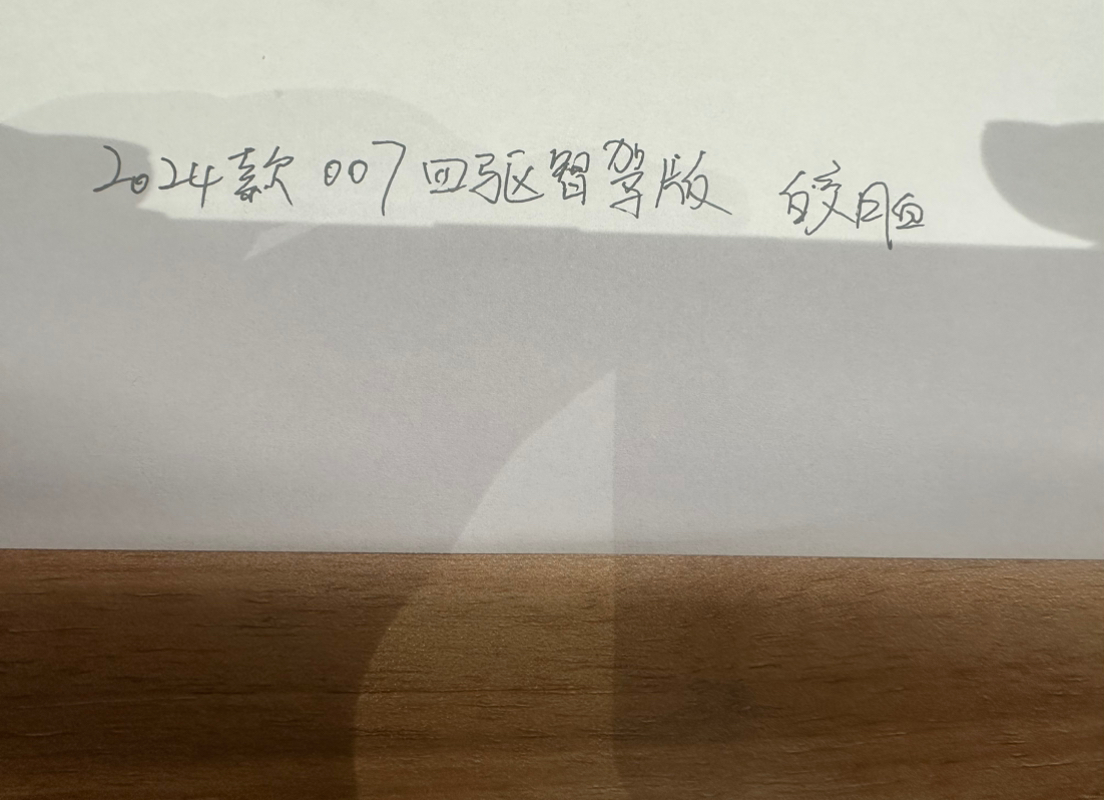 2024款 007四驱智驾版 皎月白